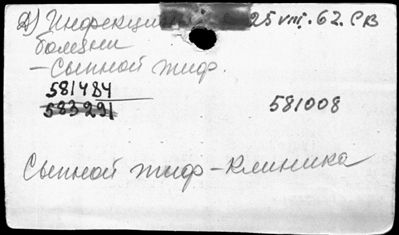 2) Инфекции 25 VIII. 62. СВ
болезни
– Сыпной тиф.
581484
583291
581008
Сыпной тиф – клиника